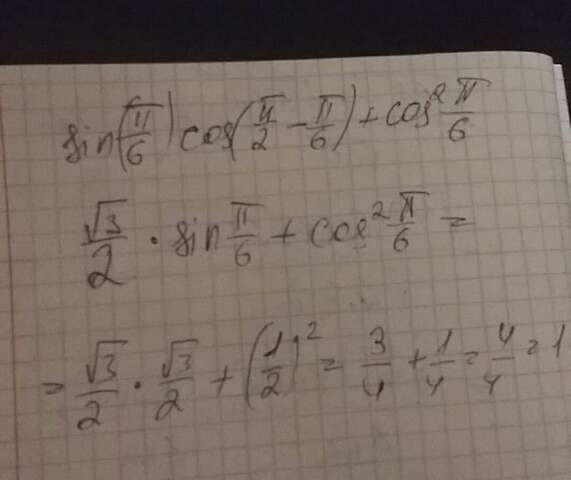 sin(π/6) cos(π/2 − π/6) + cos² π/6
√3/2 · sin π/6 + cos² π/6 =
= √3/2 · √3/2 + (1/2)² = 3/4 + 1/4 = 4/4 = 1